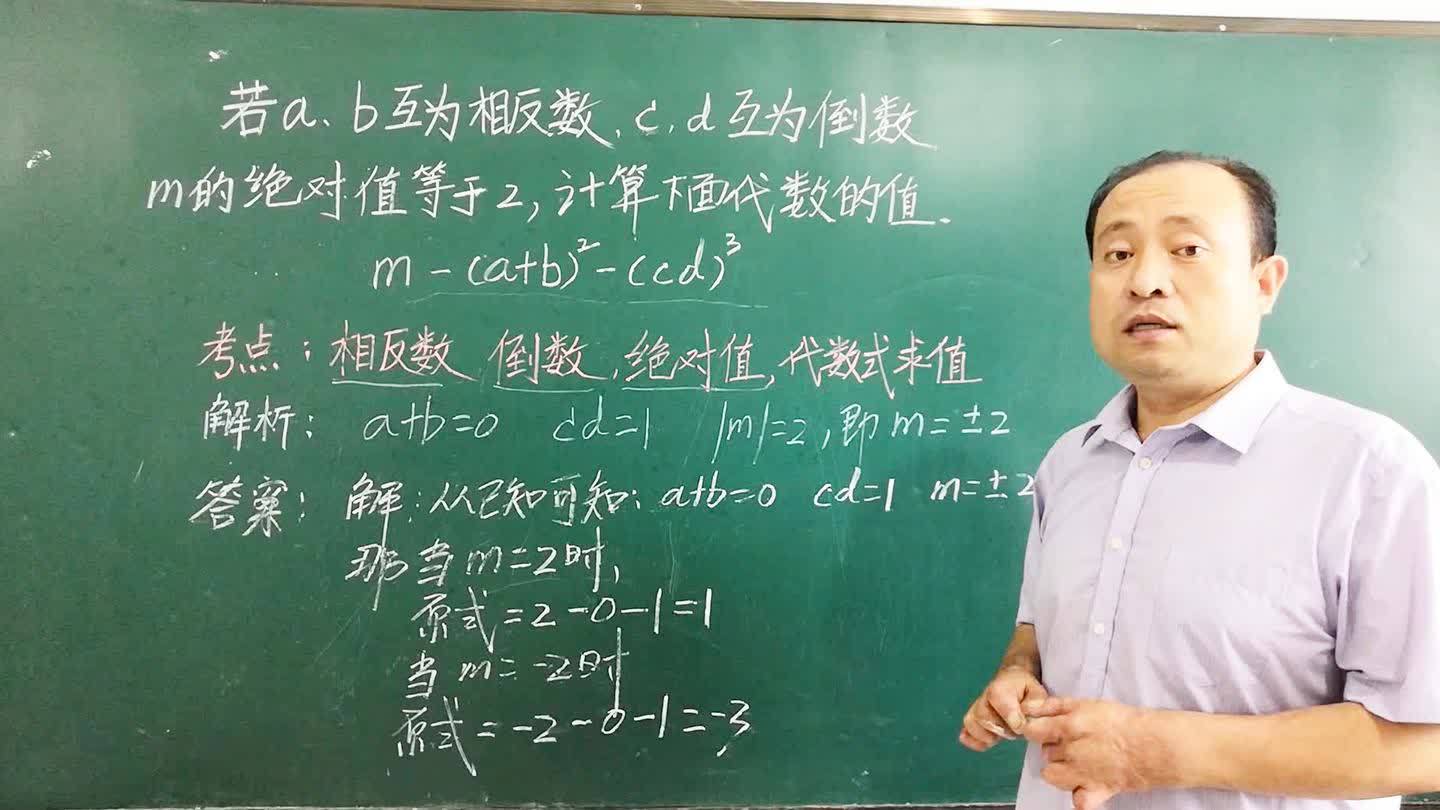 若a、b互为相反数,c,d互为倒数
m的绝对值等于2,计算下面代数的值.
m-(a+b)²-(cd)³
考点:相反数 倒数,绝对值,代数式求值
解析: a+b=0 cd=1 |m|=2,即m=±2
答案: 解:从已知可知:a+b=0 cd=1 m=±2
那当m=2时,
原式=2-0-1=1
当m=-2时
原式=-2-0-1=-3